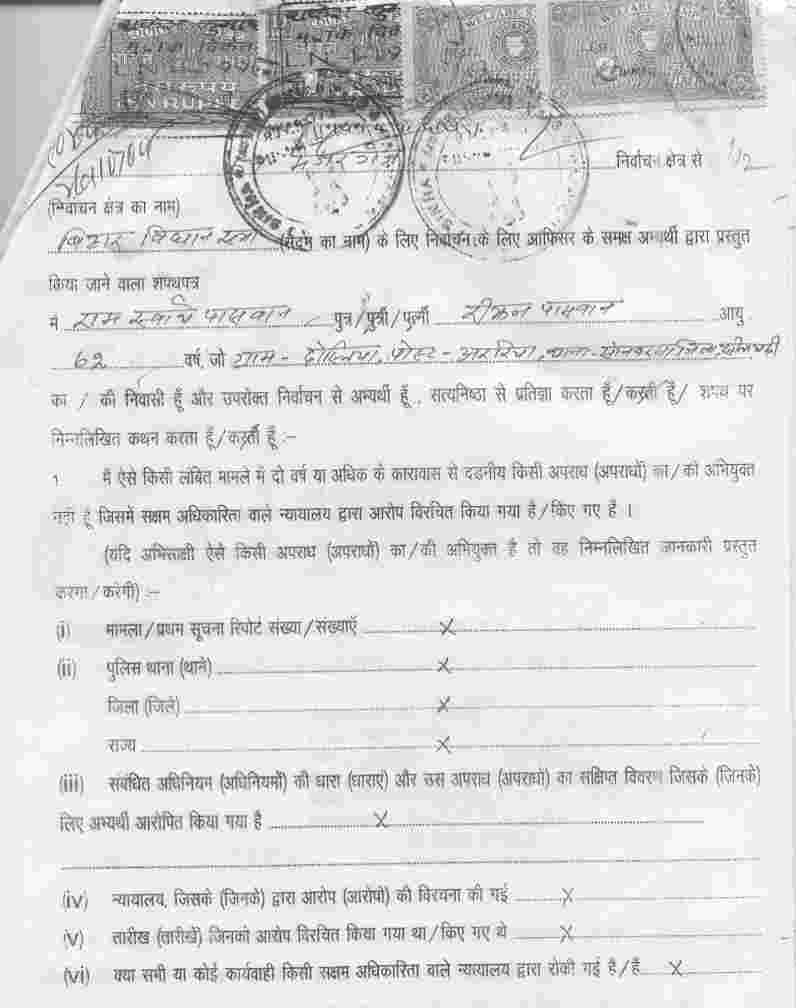 निर्वाचन क्षेत्र से
(निर्वाचन क्षेत्र का नाम)
बिहार विधान सभा (सदन का नाम) के लिए निर्वाचन के लिए आफिसर के समक्ष अभ्यर्थी द्वारा प्रस्तुत
किया जाने वाला शपथपत्र
मैं राम स्वार्थ पासवान पुत्र/पुत्री/पत्नी रीझन पासवान आयु
62 वर्ष, जो ग्राम - पोस्ट - थाना - जिला
का / की निवासी हूँ और उपरोक्त निर्वाचन से अभ्यर्थी हूँ, सत्यनिष्ठा से प्रतिज्ञा करता हूँ/करती हूँ/ शपथ पर
निम्नलिखित कथन करता हूँ/करती हूँ :-
1 मैं ऐसे किसी लंबित मामले में दो वर्ष या अधिक के कारावास से दंडनीय किसी अपराध (अपराधों) का/की अभियुक्त
नहीं हूँ जिसमें सक्षम अधिकारिता वाले न्यायालय द्वारा आरोप विरचित किया गया है/किए गए हैं ।
(यदि अभिसाक्षी ऐसे किसी अपराध (अपराधों) का/की अभियुक्त है तो वह निम्नलिखित जानकारी प्रस्तुत
करेगा/करेगी) :-
(i) मामला/प्रथम सूचना रिपोर्ट संख्या/संख्याएँ X
(ii) पुलिस थाना (थाने) X
जिला (जिले) X
राज्य X
(iii) संबंधित अधिनियम (अधिनियमों) की धारा (धाराएं) और उस अपराध (अपराधों) का संक्षिप्त विवरण जिसके (जिनके)
लिए अभ्यर्थी आरोपित किया गया है X
(iv) न्यायालय, जिसके (जिनके) द्वारा आरोप (आरोपों) की विरचना की गई X
(v) तारीख (तारीखें) जिनको आरोप विरचित किया गया था/किए गए थे X
(vi) क्या सभी या कोई कार्यवाही किसी सक्षम अधिकारिता वाले न्यायालय द्वारा रोकी गई है/हैं X